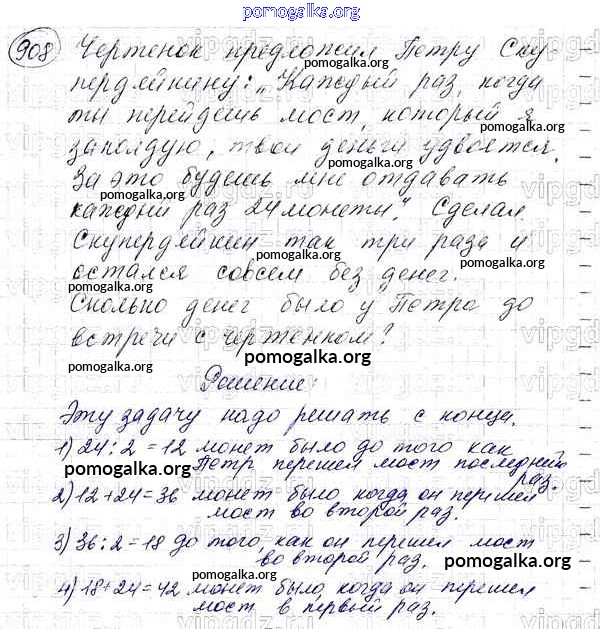 pomogalka.org
908 Чертенок предложил Петру Ску-
пердяйкину: „Каждый раз, когда
ты перейдешь мост, который я
pomogalka.org
заколдую, твои деньги удвоятся.
pomogalka.org
За это будешь мне отдавать
pomogalka.org
каждый раз 24 монеты". Сделал
pomogalka.org
Скупердяйкин так три раза и
остался совсем без денег.
pomogalka.org
Сколько денег было у Петра до
встречи с чертенком?
pomogalka.org
Решение:
Эту задачу надо решать с конца.
1) 24 : 2 = 12 монет было до того как
pomogalka.org
Петр перешел мост последний
раз.
pomogalka.org
2) 12 + 24 = 36 монет было, когда он перешел
мост во второй раз.
3) 36 : 2 = 18 до того, как он перешел мост
во второй раз.
pomogalka.org
pomogalka.org
4) 18 + 24 = 42 монет было, когда он перешел
мост в первый раз.